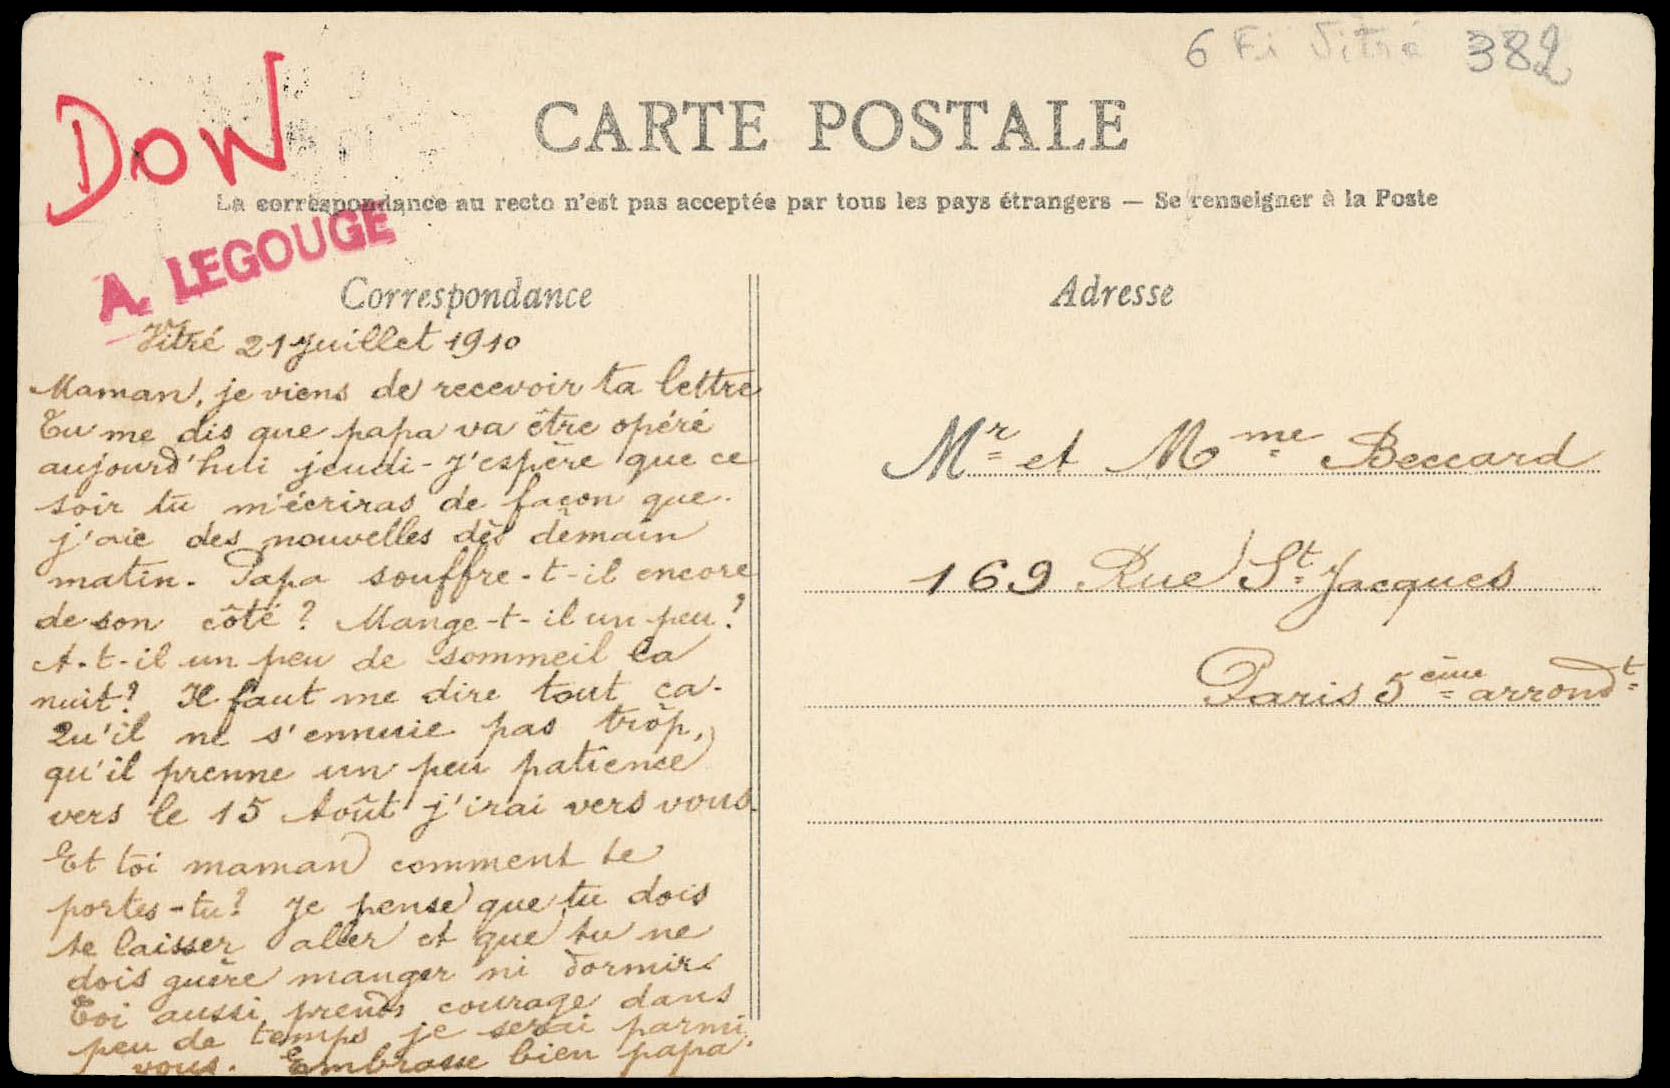 6 Fi Vitré 382
DON
A. LEGOUGE
CARTE POSTALE
La correspondance au recto n'est pas acceptée par tous les pays étrangers — Se renseigner à la Poste
Correspondance
Vitré 21 Juillet 1910
Maman, je viens de recevoir ta lettre
Tu me dis que papa va être opéré
aujourd'hui jeudi - J'espère que ce
soir tu m'écriras de façon que
j'aie des nouvelles dès demain
matin. Papa souffre-t-il encore
de son côté ? Mange-t-il un peu ?
A-t-il un peu de sommeil la
nuit ? Il faut me dire tout ça.
Qu'il ne s'ennuie pas trop,
qu'il prenne un peu patience
vers le 15 Août j'irai vers vous.
Et toi maman comment te
portes-tu ? Je pense que tu dois
te laisser aller et que tu ne
dois guère manger ni dormir.
Toi aussi prends courage dans
peu de temps je serai parmi
vous. Embrasse bien papa.
Adresse
Mr et Mme Beccard
169 Rue St Jacques
Paris 5ème arrondt